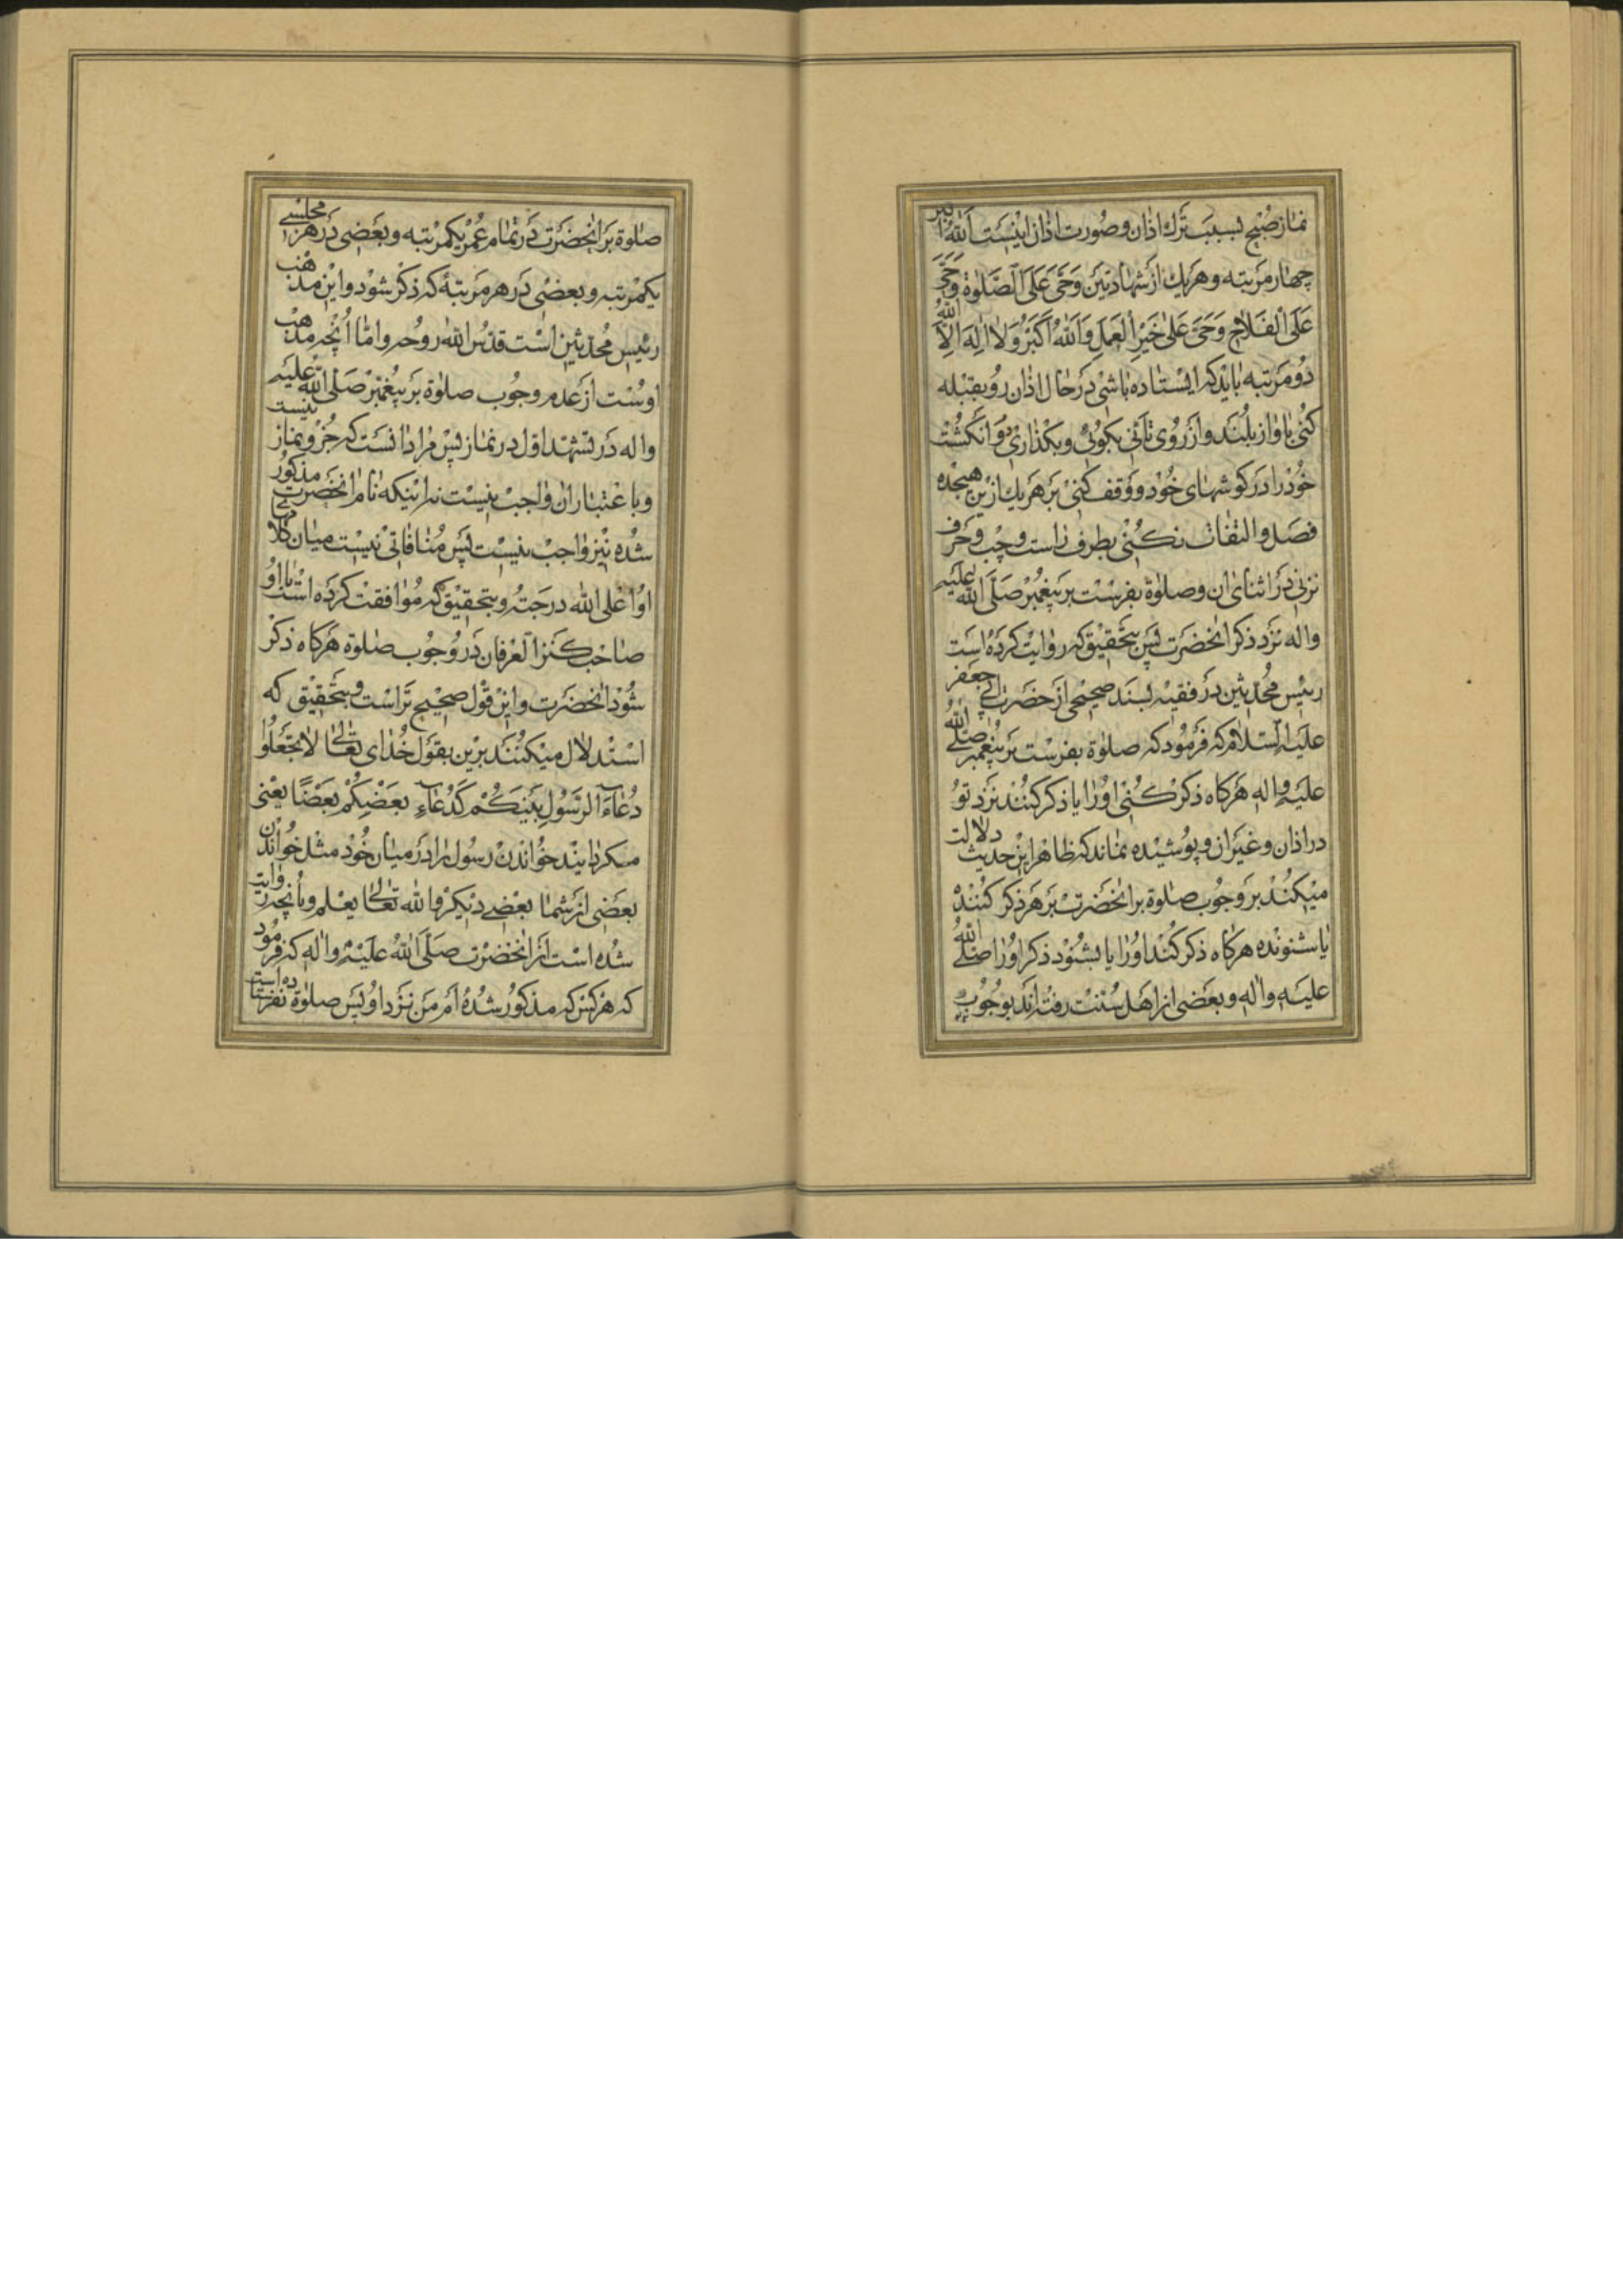 نماز صُبْح بسبب تَرك اذان و صُورت اذان اینست اَللّٰهُ اَكبر
چهار مَرتبه و هَریك از شهادتین وَحَیَّ عَلَی الصَّلوٰة وَحَیَّ
عَلَی الفَلاٰحِ وَحَیَّ عَلیٰ خَیْرِ العَمَلِ وَاَللّٰهُ اَكْبَرُ وَلاٰ اِلٰهَ اِلاَّ اللّٰهُ
دُو مَرتبه باید كه ایستاده باشی دَر حال اذان رُو بقبله
كُنی باواز بلند و از رُوی تانی بكوئی و بكذاری دو انكشت
خُود را در كوشهای خُود و وَقف كنی بَر هَر یك ازین هیجده
فصل و التفات نكُنی بطرف راست و چپ و حَرف
نزنی در اثنای ان و صلوٰة بفرست بر پیغمبر صَلَّی اللّٰه عَلیَه
واله نزد ذكر انحضرت پس بتحقیق كه روایت كرده است
رییس مُحدّثین در فقیه بسند صحیحی از حضرت ابی جعفر
علیَه السّلام كه فَرمُود كه صلوٰة بفرست بَر پیغمبر صلّی اللّٰه
علیَه واله هَركاه ذكر كُنی اورا یا ذكر كنند نزد تو
در اذان و غیر ان و پوشیده نماند كه ظاهر این حدیث دلالت
میكند بر وجُوب صلوٰة بر انحضرت بر هَر ذكر كنندهٔ
یا شنونده هركاه ذكر كُند اورا یا بشنود ذكر اورا صلّی اللّٰه
علیَه واله و بعضی از اهل سُنّت رفته اند بوجُوب
صلوٰة بَر انحضرت در تمام عُمر یكمرتبه و بعضی در هر مجلسی
یكمرتبه و بعضی در هر مَرتبهٔ كه ذكر شود و این مذهب
رییس مُحدّثین است قدّس اللّٰه روُحه و امّا انچه مذهب
اوست از عدم وجُوب صلوٰة بَر پیغمبر صَلی اللّٰه علیَه
واله در تشهّد اوّل در نماز پس مُراد انست كه جُزو نماز نیست
و باعتبار ان واجب نیست نه اینكه نام انحضرت مذكور
شده نیز واجب نیست پس مُنافاتی نیست میان كلام
او اعلی اللّٰه درجته و بتحقیق كه مُوافقت كرده است با او
صاحب كنز العرفان در وُجُوب صلوٰة هَركاه ذكر
شود انحضرت و این قول صحیح تر است و بتحقیق كه
استدلال میكنند برین بقول خُدای تعالیٰ لاٰ تَجْعَلُوا
دُعٰاءَ الرَّسُولِ بَیْنَكُمْ كَدُعٰاءِ بَعْضِكُمْ بَعْضًا یعنی
مكردانید خواندن رسُول را در میان خُود مثل خواندن
بعضی از شما بعضی دیكر و اللّٰه تعالیٰ یعلم و بانچه روایت
شده است از انحضرت صَلَّی اللّٰهُ علَیْهِ واله كه فرمُود
كه هَركس كه مذكور شدهٔ ام من نزد او پس صلوٰة نفرستاده است